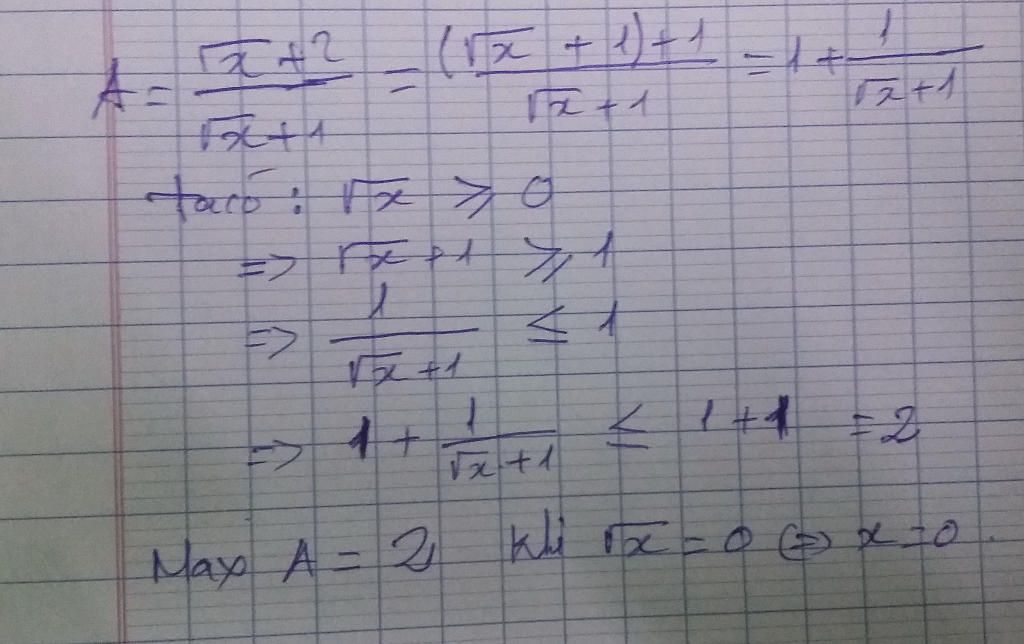 A = (√x + 2)/(√x + 1) = ((√x + 1) + 1)/(√x + 1) = 1 + 1/(√x + 1)
ta có : √x ≥ 0
=> √x + 1 ≥ 1
=> 1/(√x + 1) ≤ 1
=> 1 + 1/(√x + 1) ≤ 1 + 1 = 2
Max A = 2 khi √x = 0 <=> x = 0.